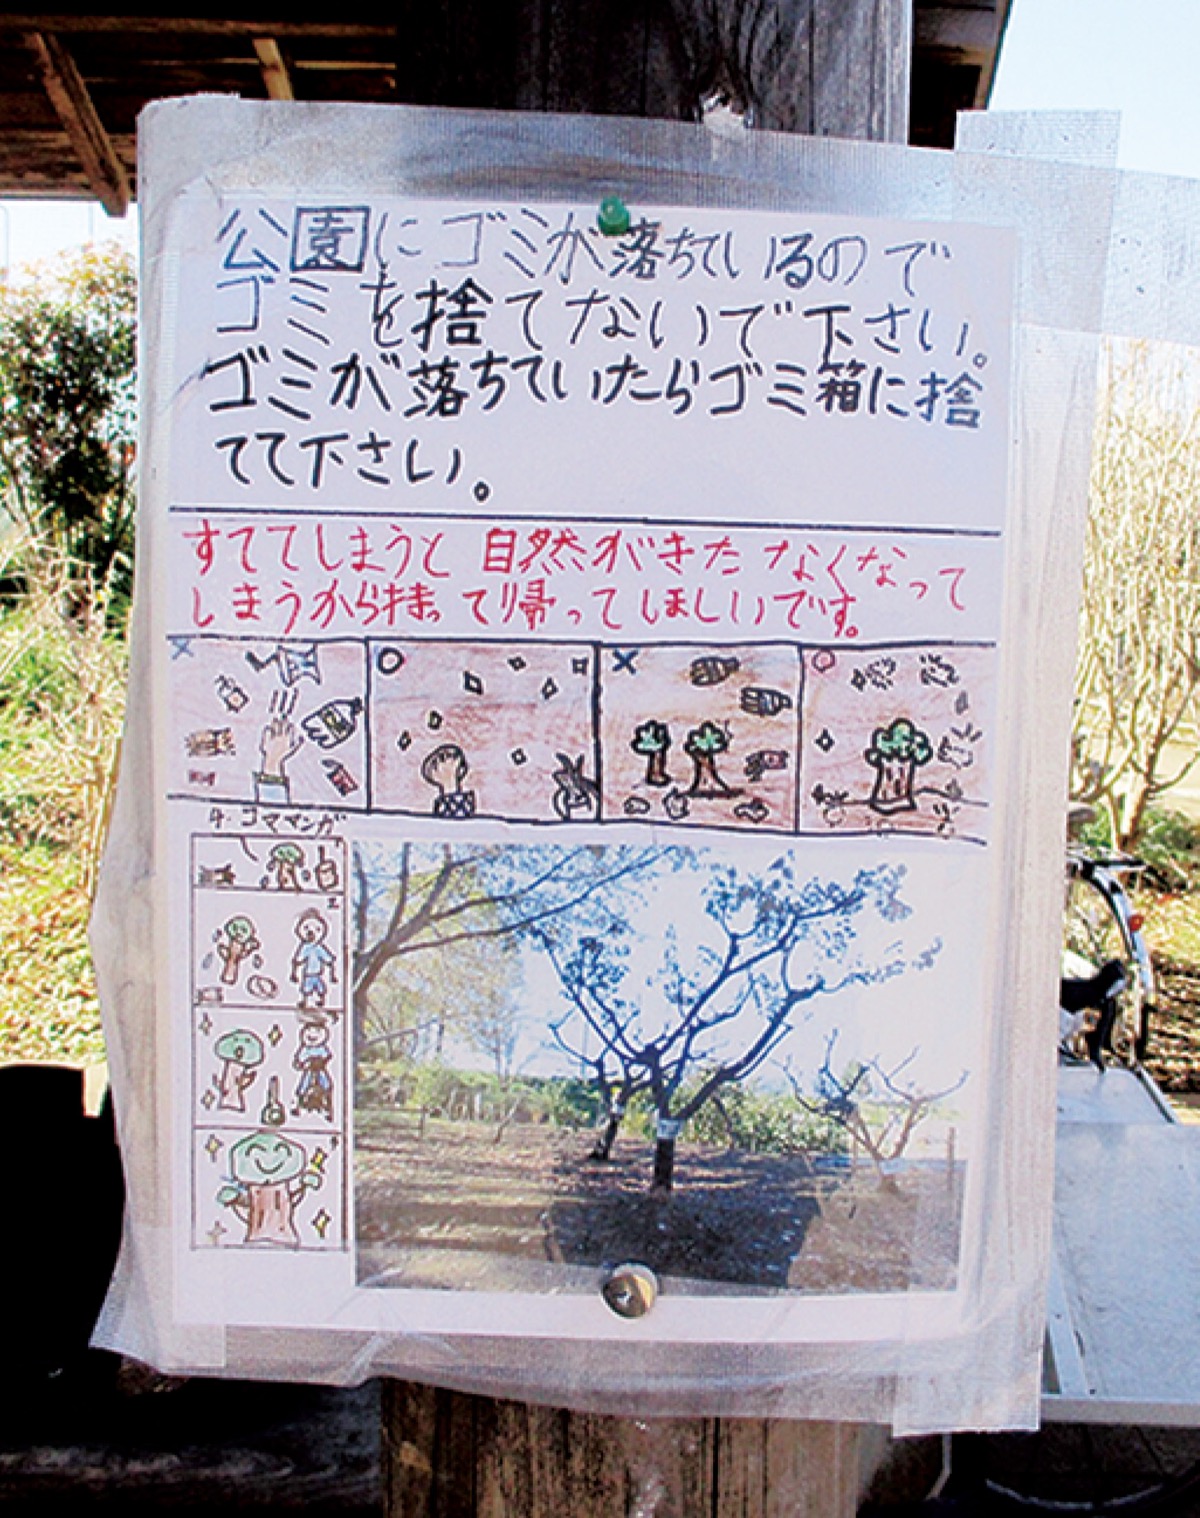 公園にゴミが落ちているので
ゴミを捨てないで下さい。
ゴミが落ちていたらゴミ箱に捨
てて下さい。
すててしまうと自然がきたなくなって
しまうから持って帰ってほしいです。
× ○ × ○
4コママンガ